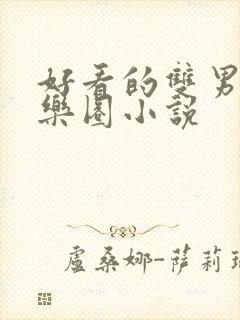 好看的雙男
樂園小說
盧桑娜-萨莉瑞